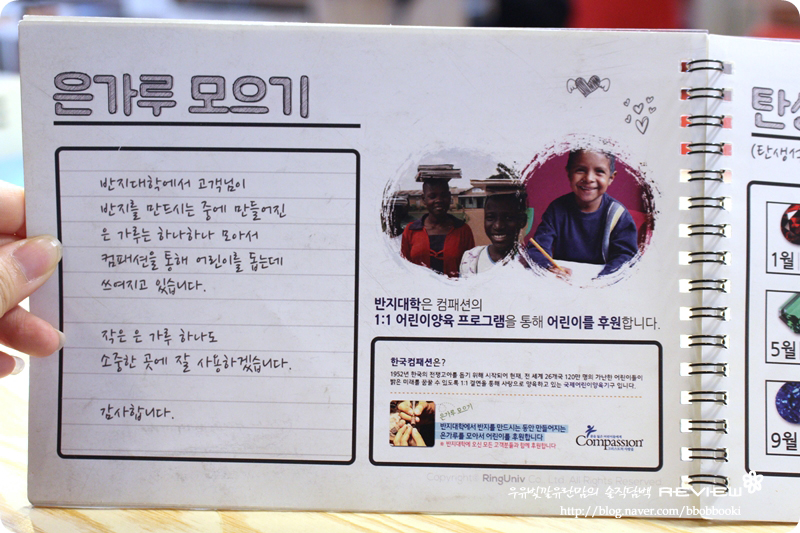 은가루 모으기
반지대학에서 고객님이
반지를 만드시는 중에 만들어진
은 가루는 하나하나 모아서
컴패션을 통해 어린이를 돕는데
쓰여지고 있습니다.
작은 은 가루 하나도
소중한 곳에 잘 사용하겠습니다.
감사합니다.
반지대학은 컴패션의
1:1 어린이양육 프로그램을 통해 어린이를 후원합니다.
한국컴패션은?
1952년 한국의 전쟁고아를 돕기 위해 시작되어 현재, 전 세계 26개국 120만 명의 가난한 어린이들이
밝은 미래를 꿈꿀 수 있도록 1:1 결연을 통해 사랑으로 양육하고 있는 국제어린이양육기구 입니다.
은가루 모으기
반지대학에서 반지를 만드시는 동안 만들어지는
은가루를 모아서 어린이를 후원합니다
※ 반지대학에 오신 모든 고객분들과 함께 후원합니다
Compassion
Copyright © RingUniv Co., Ltd. All Rights Reserved
탄생
(탄생석
1월
5월
9월
우유빛깔유란맘의 솔직담백 REVIEW
http://blog.naver.com/bbobbooki